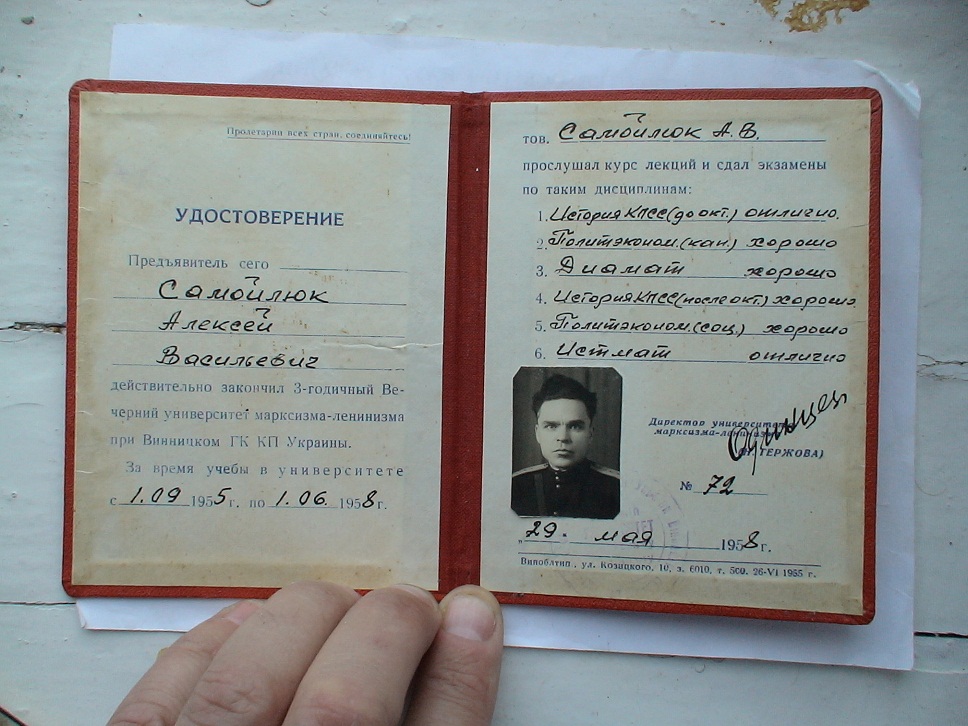 Пролетарии всех стран, соединяйтесь!
УДОСТОВЕРЕНИЕ
Предъявитель сего
Самойлюк
Алексей
Васильевич
действительно закончил 3-годичный Ве-
черний университет марксизма-ленинизма
при Винницком ГК КП Украины.
За время учебы в университете
с 1.09 1955 г. по 1.06. 1958 г.
тов. Самойлюк А.В.
прослушал курс лекций и сдал экзамены
по таким дисциплинам:
1. История КПСС (до окт.) отлично.
2. Политэконом. (кап.) хорошо
3. Диамат хорошо
4. История КПСС (после окт.) хорошо
5. Политэконом. (соц.) хорошо
6. Истмат отлично
Директор университета
марксизма-ленинизма
ТЕРЖОВА)
№ 72
"29. мая 1958 г.
Виноблтип., ул. Козицкого, 10, з. 6010, т. 500. 26-VI 1955 г.